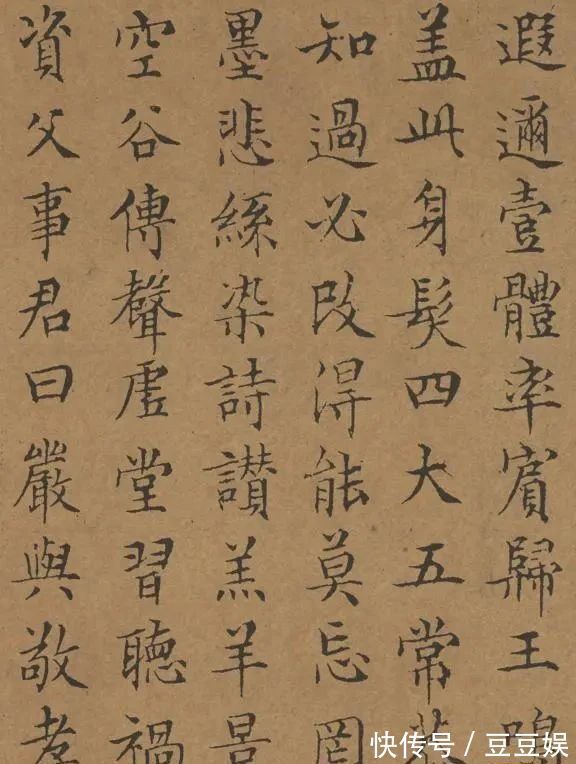 遐邇壹體率賓歸王鳴
盖此身髮四大五常
知過必改得能莫忘罔
墨悲絲染詩讃羔羊景
空谷傳聲虛堂習聽禍
資父事君曰嚴與敬孝
快传号 / 豆豆娱